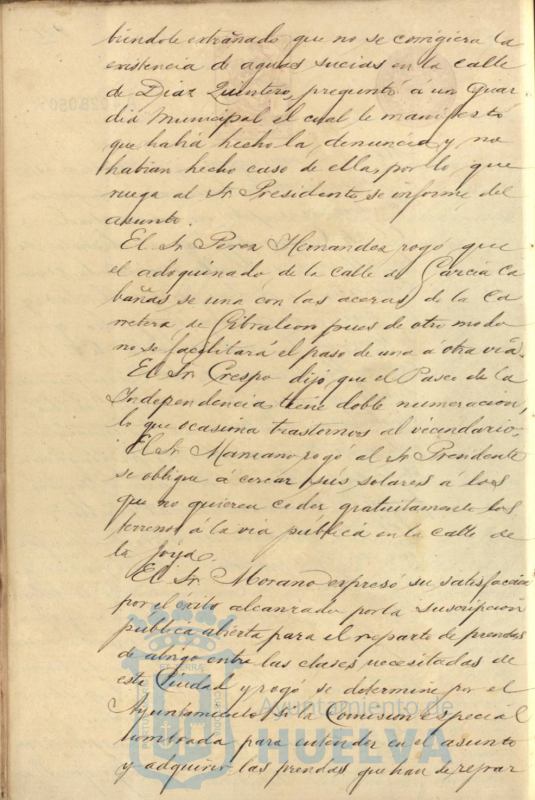 biéndole extrañado que no se corrigiera la
existencia de aguas sucias en la calle
de Diaz Quintero, preguntó a un Guar
dia Municipal el cual le manifestó
que habia hecho la denuncia y no
habian hecho caso de ella, por lo que
ruega al Sr Presidente, se informe del
asunto.
El Sr Perez Hernandez rogó que
el adoquinado de la calle de Garcia Ca
bañas se una con las aceras de la Ca
rretera de Gibraleon pues de otro modo
no se facilitará el paso de una á otra via.
El Sr. Crespo dijo que el Paseo de la
Independencia tiene doble numeracion,
lo que ocasiona trastornos al vecindario.
El Sr Manzano rogó al Sr Presidente
se oblique á cercar sus solares á los
que no quieren ceder gratuitamente los
terrenos á la via pública en la calle de
la Joya.
El Sr. Morano expresó su satisfacción
por el éxito alcanzado por la suscripcion
pública abierta para el reparto de prendas
de abrigo entre las clases necesitadas de
esta Ciudad y rogó se determine por el
Ayuntamiento si la Comision especial
nombrada para entender en el asunto
y adquirir las prendas que han de repar
Ayuntamiento de
HUELVA